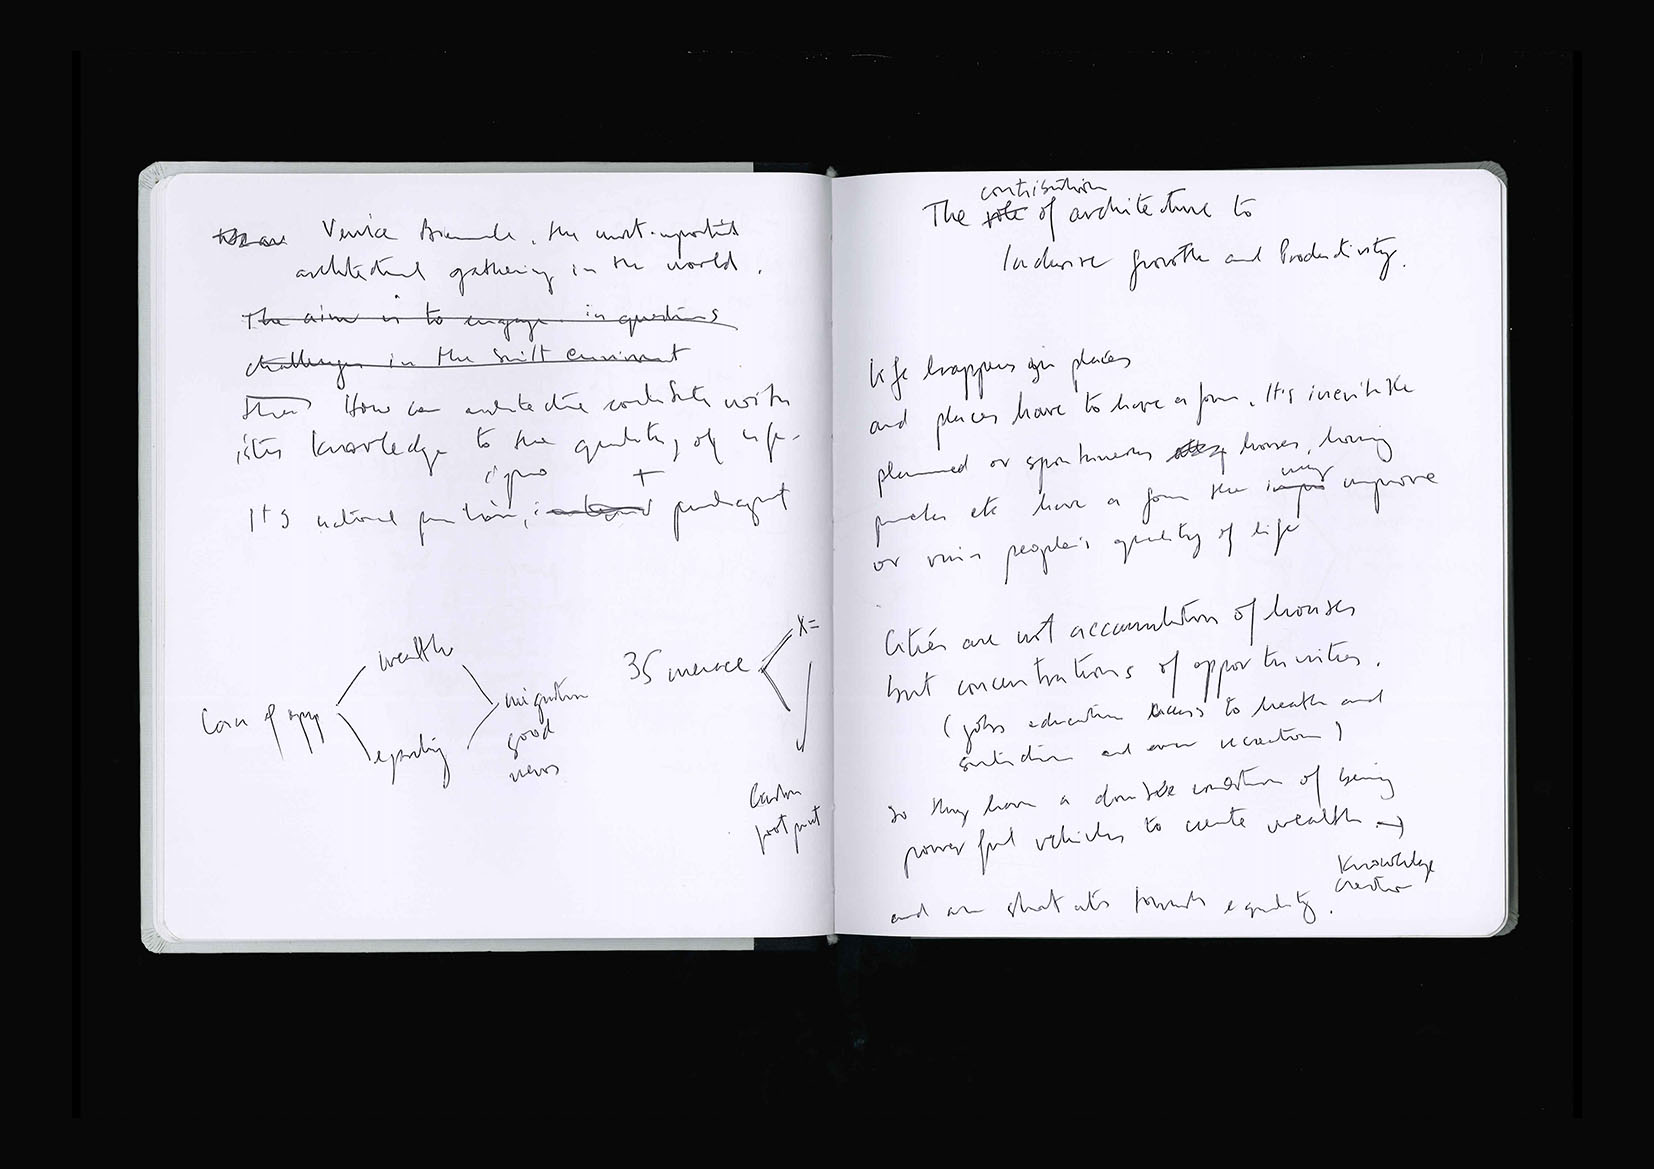 Venice Biennale, the most important
architectural gathering in the world.
The aim is to engage in questions
challenges in the built environment
How can architecture contribute with
its knowledge to the quality of life.
It's national pavilion,
wealth
migration
good
news
35 menace
X=
Carbon
footprint
contribution
The role of architecture to
Inclusive growth and Productivity.
Life happens in places
and places have to have a form. It's inevitable
planned or spontaneous houses, housing
etc have a form the may improve
or ruin people's quality of life
Cities are not accumulation of houses
but concentrations of opportunities.
(jobs education access to health and
and even recreation)
so they have a double condition of being
powerful vehicles to create wealth →
Knowledge
creation
and are shortcuts towards equality.